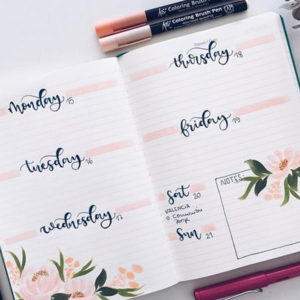 Coloring Brush Pen
Coloring Brush Pen
monday 15
tuesday 16
wednesday 17
thursday 18
friday 19
Sat 20
VALENCIA
Sun 21
NOTES